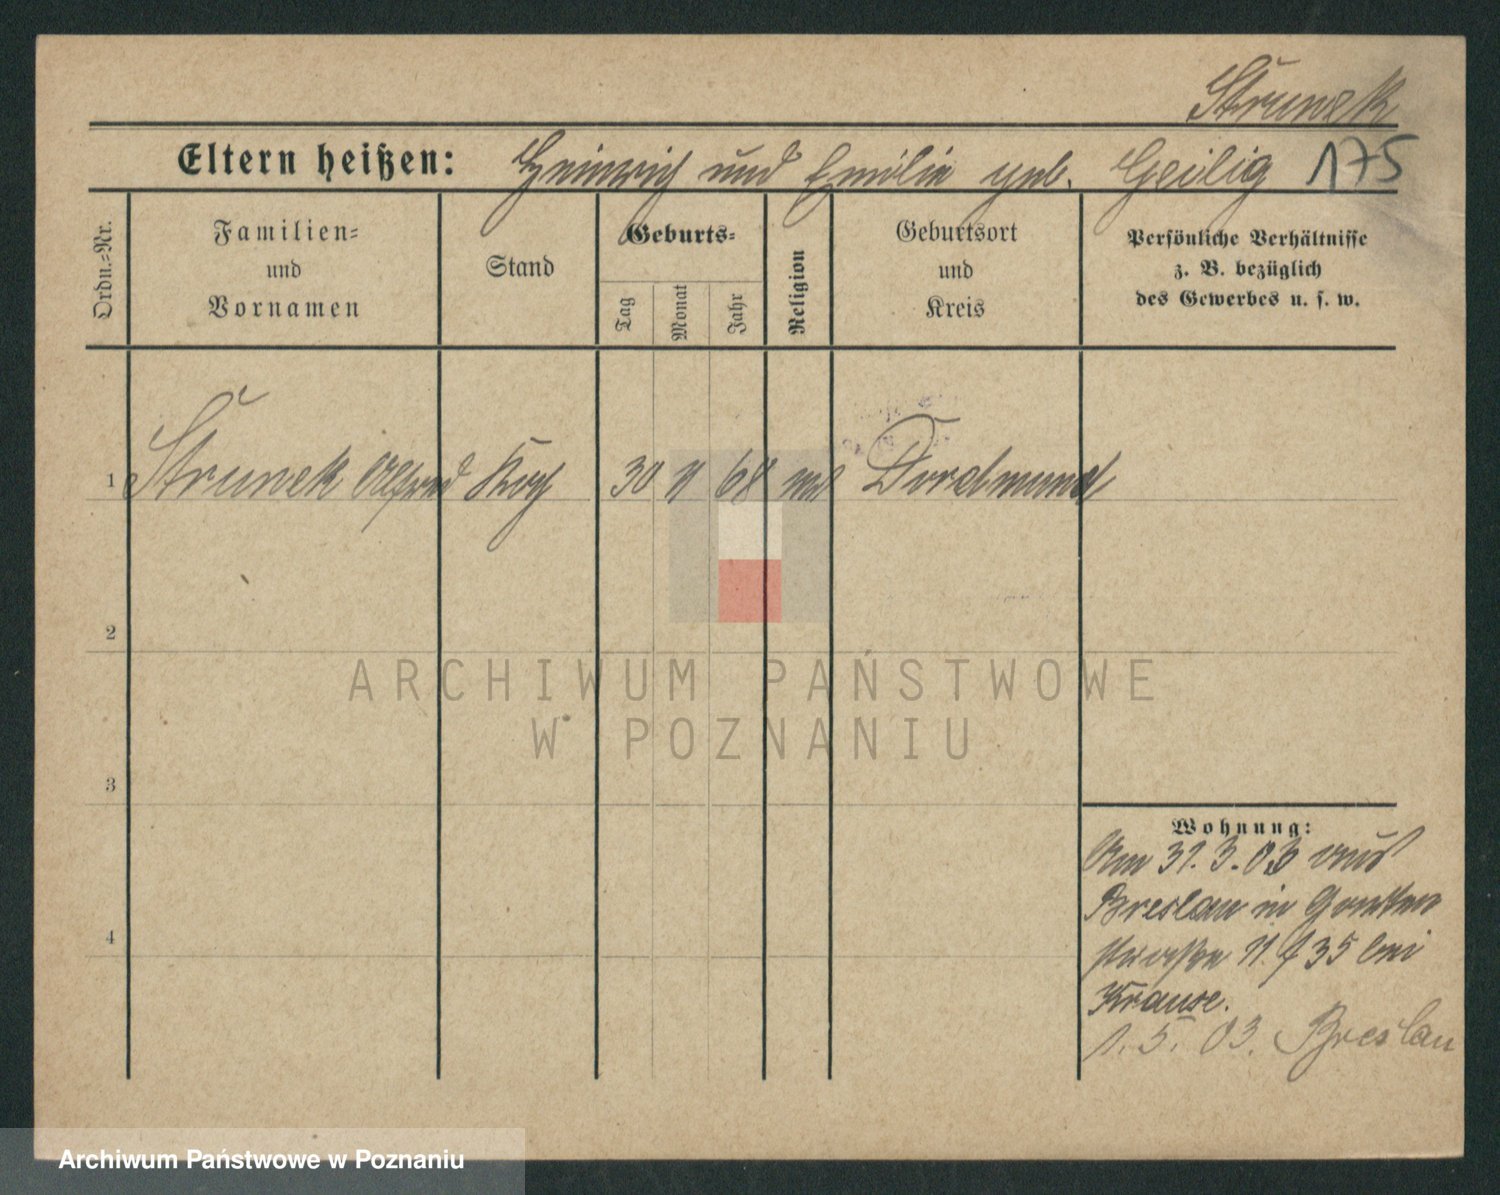 Strunck
Eltern heißen: Heinrich und Emilie geb. Geilig 175
Ordn.-Nr.
Familien- und Vornamen
Stand
Geburts-
Tag
Monat
Jahr
Religion
Geburtsort und Kreis
Persönliche Verhältnisse
z. B. bezüglich
des Gewerbes u. s. w.
1 Strunck Alfred Koch 30 11 68 Dordmund
2
3
4
Wohnung:
Am 31.3.03 aus
Breslau in
straße 11. 35 bei
Krause.
1. 5. 03. Breslau
ARCHIWUM PAŃSTWOWE
W POZNANIU
Archiwum Państwowe w Poznaniu